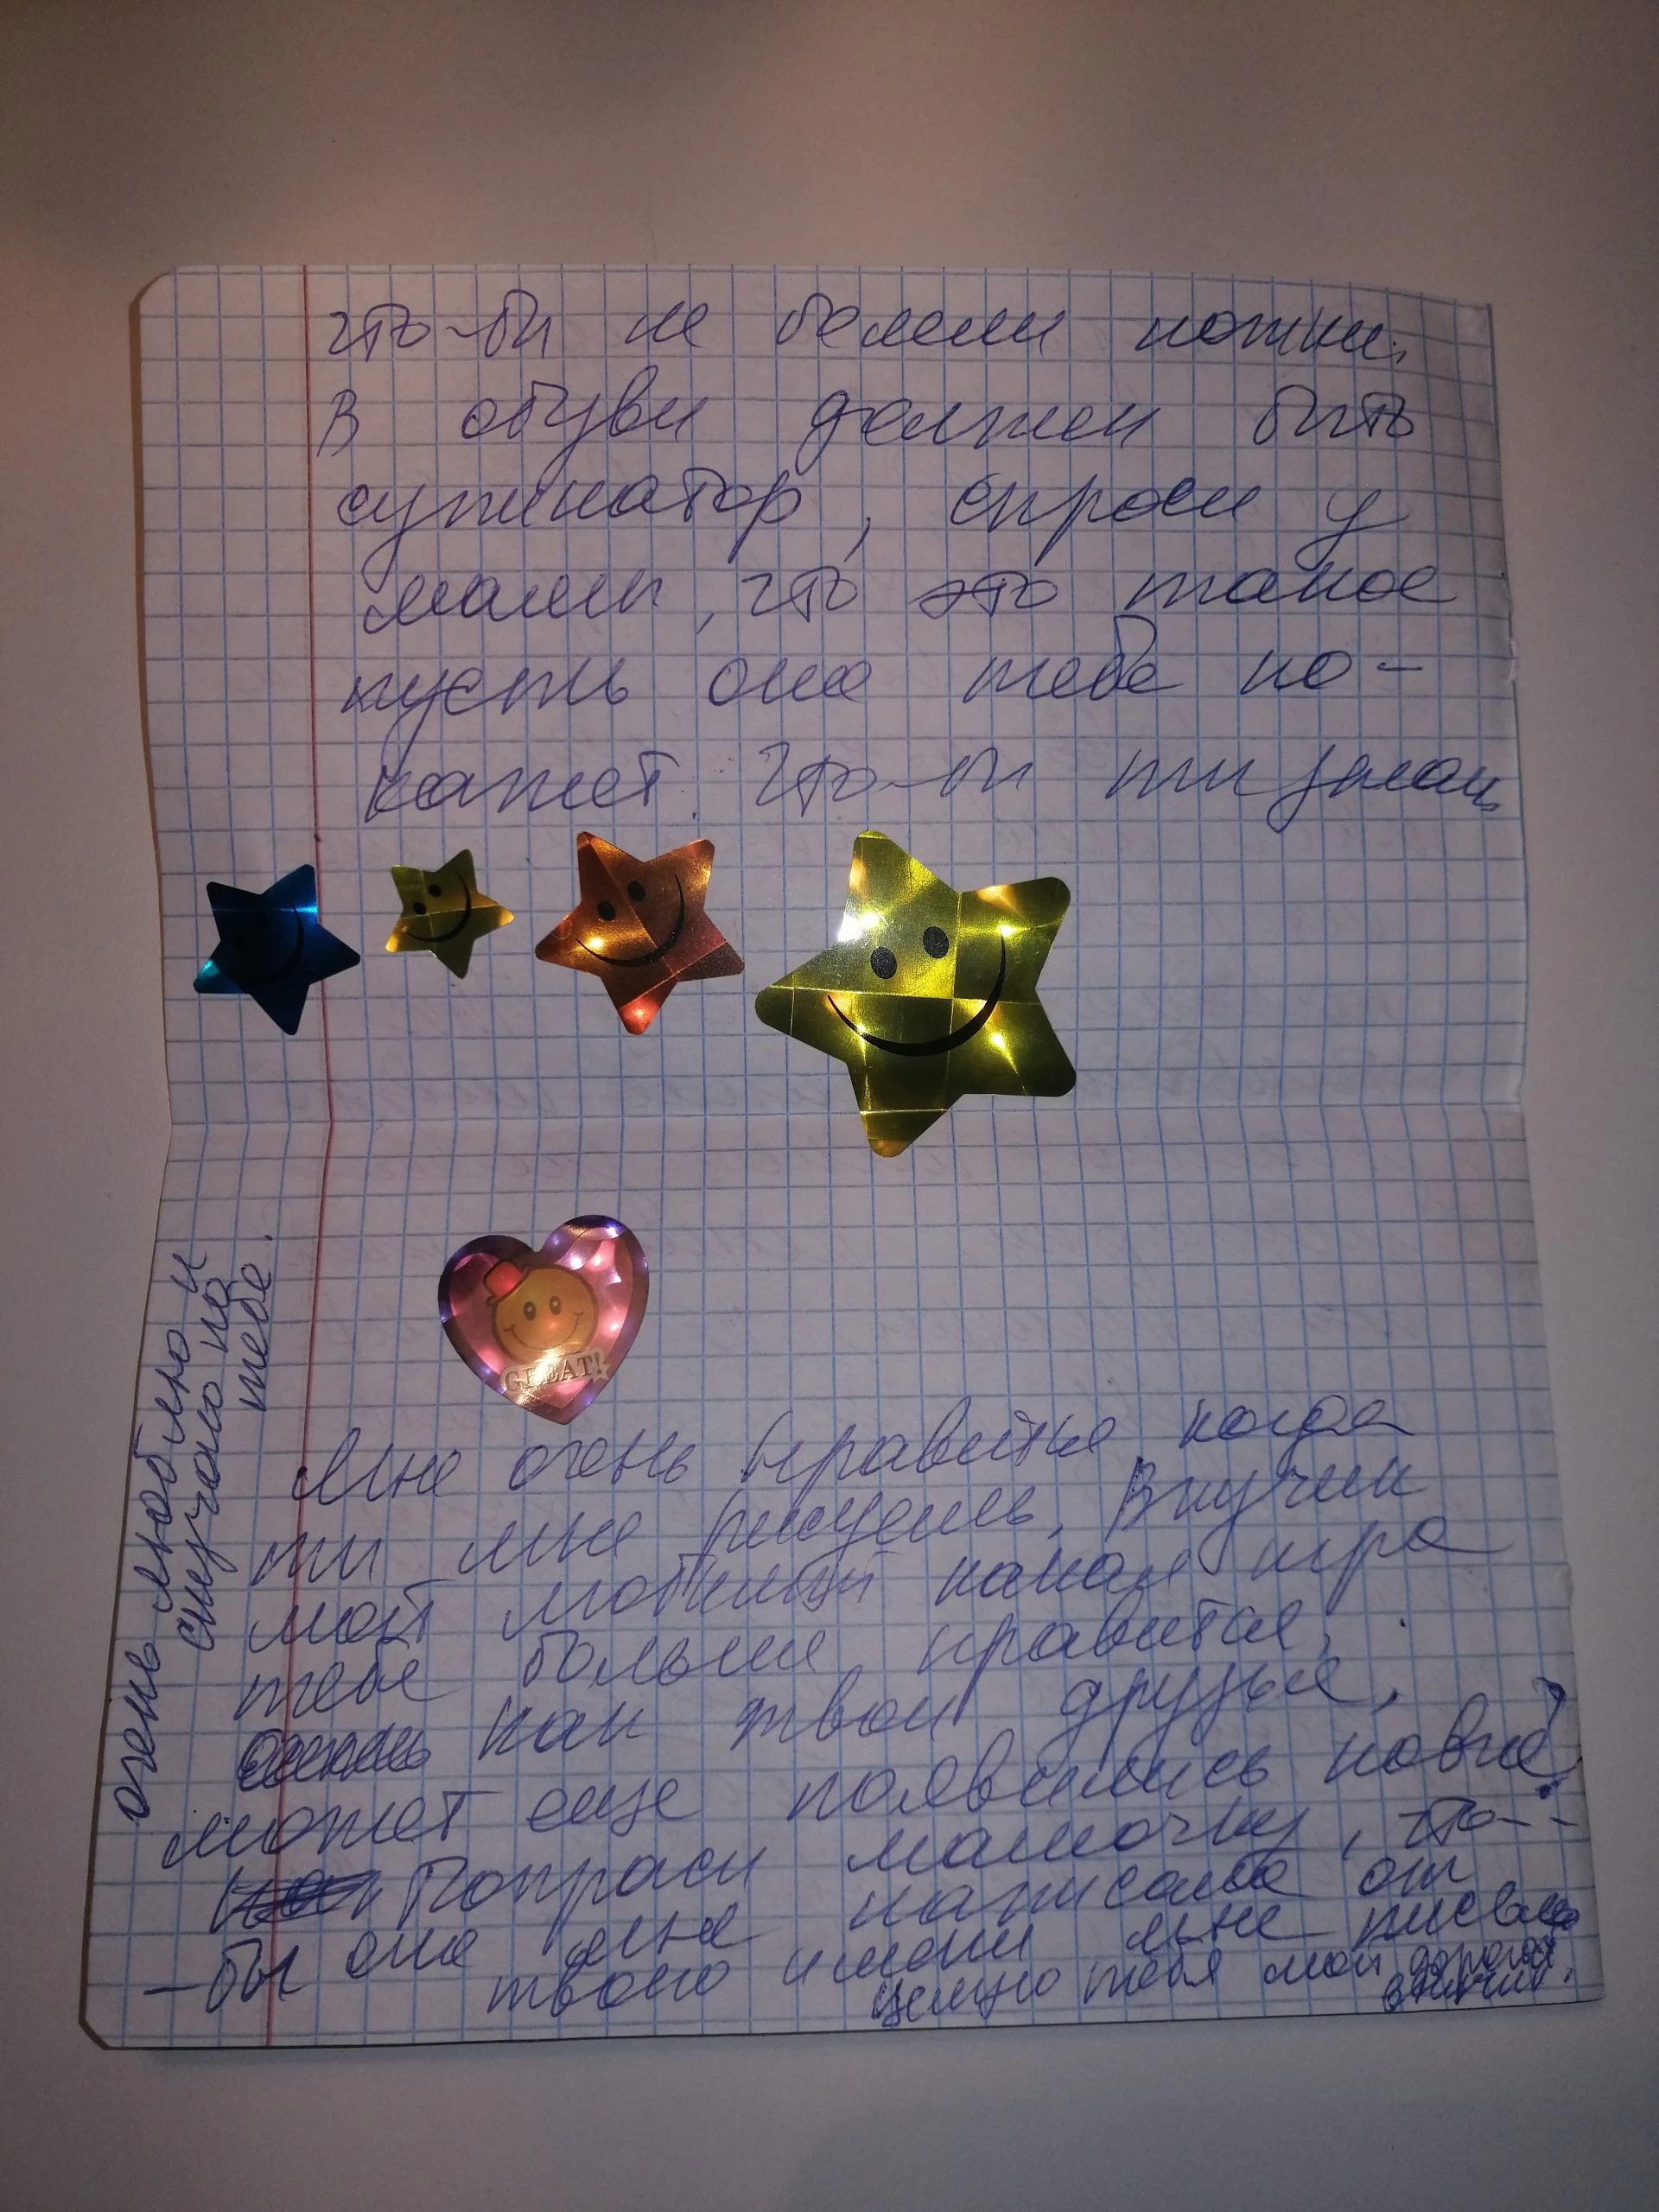 что-бы не болели ножки.
В обуви должен быть
супинатор, спроси у
мамы, что это такое
пусть она тебе по-
кажет. Что-бы ты знаешь
GREAT!
Мне очень нравится, когда
ты мне рисуешь. Внучек
мой любимый какая игра
тебе больше нравится,
как твои друзья,
может еще появились новые?
Попроси мамочку, что-
-бы она мне написала от
твоего имени мне письмо
целую тебя мой дорогой
внучик.
очень люблю и
скучаю по
тебе.